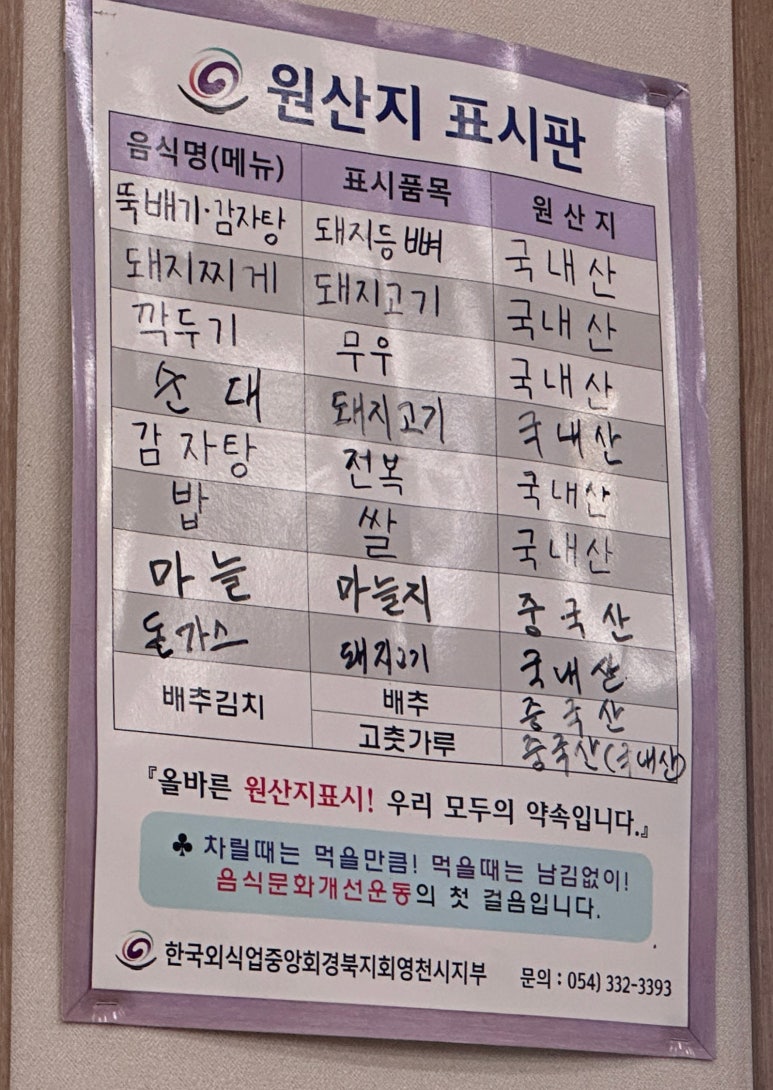 원산지 표시판
음식명(메뉴) 표시품목 원산지
뚝배기·감자탕 돼지등뼈 국내산
돼지찌게 돼지고기 국내산
깍두기 무우 국내산
순대 돼지고기 국내산
감자탕 전복 국내산
밥 쌀 국내산
마늘 마늘지 중국산
돈가스 돼지고기 국내산
배추김치 배추 중국산
고춧가루 중국산(국내산)
『올바른 원산지표시! 우리 모두의 약속입니다.』
♣ 차릴때는 먹을만큼! 먹을때는 남김없이!
음식문화개선운동의 첫 걸음입니다.
한국외식업중앙회경북지회영천시지부 문의 : 054) 332-3393